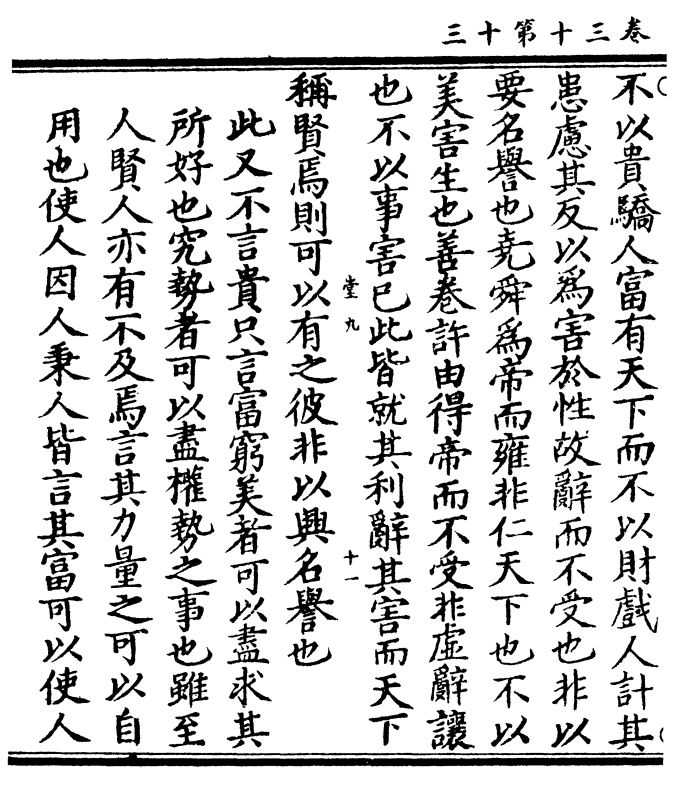 卷三十第十三
不以貴驕人富有天下而不以財戲人計其
患慮其反以爲害於性故辭而不受也非以
要名譽也堯舜爲帝而雍非仁天下也不以
美害生也善卷許由得帝而不受非虛辭讓
也不以事害已此皆就其利辭其害而天下
堂九 十一
稱賢焉則可以有之彼非以興名譽也
此又不言貴只言富窮美者可以盡求其
所好也究勢者可以盡權勢之事也雖至
人賢人亦有不及焉言其力量之可以自
用也使人因人秉人皆言其富可以使人